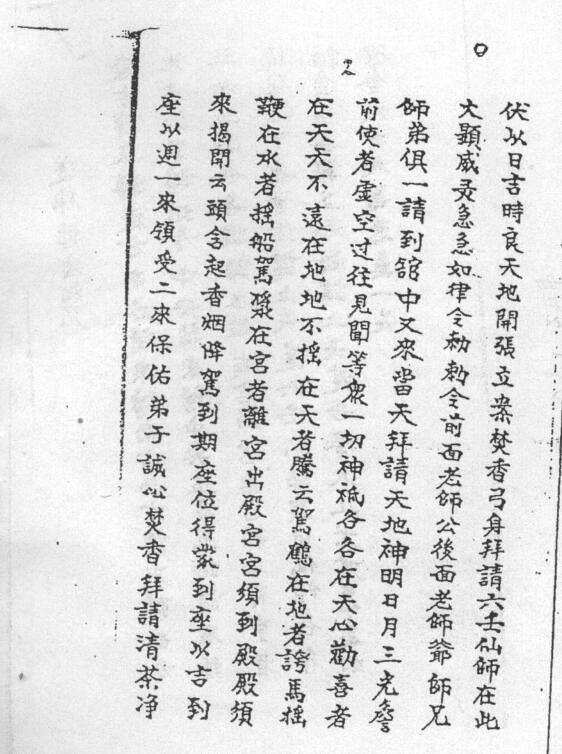 伏以日吉時良天地開張立案焚香弓身拜請六壬仙師在此
大顯威灵急急如律令勅勅令前面老師公後面老師爺師兄
師弟俱一請到舘中又來當天拜請天地神明日月三光詹
前使者虛空过往見聞等衆一切神祇各各在天心勸喜者
在天天不遠在地地不摇在天者騰云駕鶴在地者誇馬摇
鞭在水者摇船駕漿在宮者離宮出殿宮宮須到殿殿須
來揭開云頭含起香烟降駕到期座位得蒙到座以吉到
座以週一來領受二來保佑弟子誠心焚香拜請清茶净